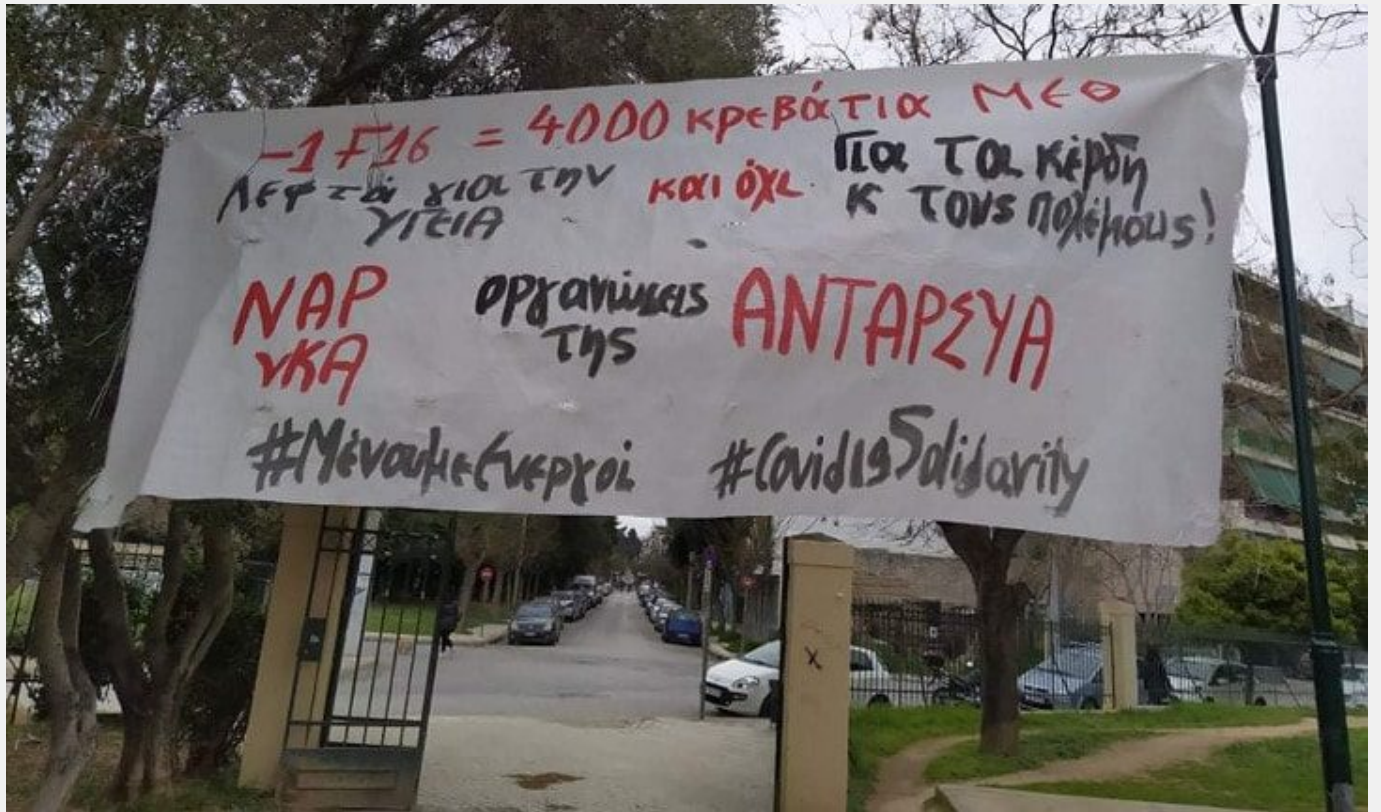 -1 F16 = 4000 κρεβάτια ΜΕΘ
Λεφτά για την ΥΓΕΙΑ
και όχι
Για τα κέρδη
κ τους πολέμους!
ΝΑΡ
νΚΑ
οργανώσεις
της
ΑΝΤΑΡΣΥΑ
#ΜένουμεΕνεργοί
#Covid19Solidarity